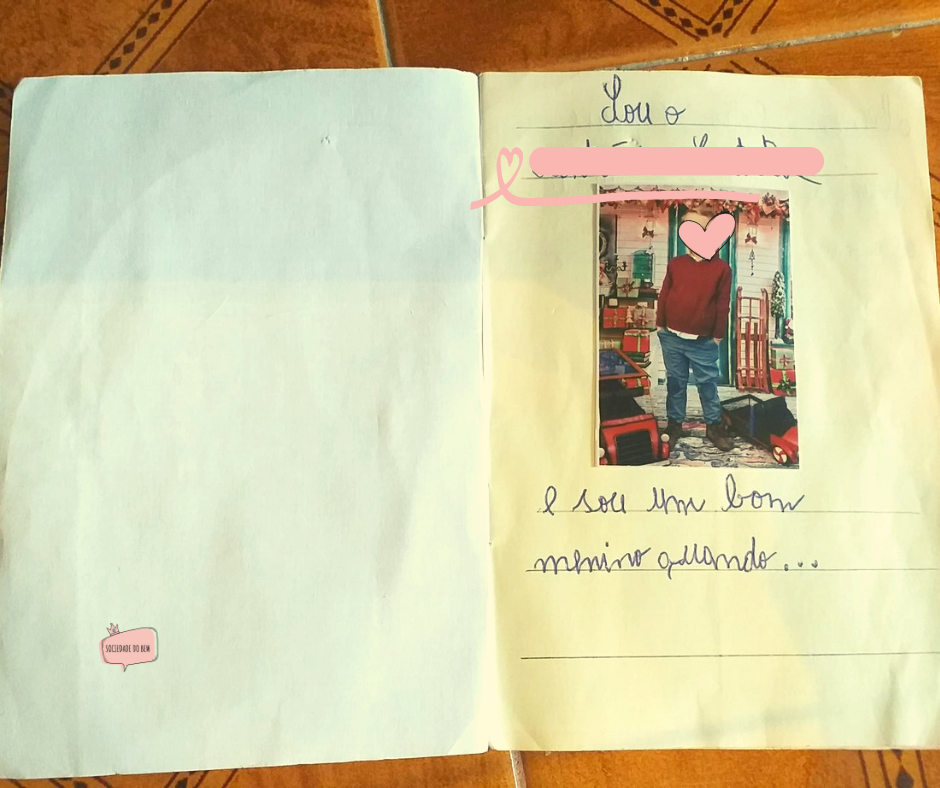 Sou o
e sou um bom
menino quando...
SOCIEDADE DO BEM